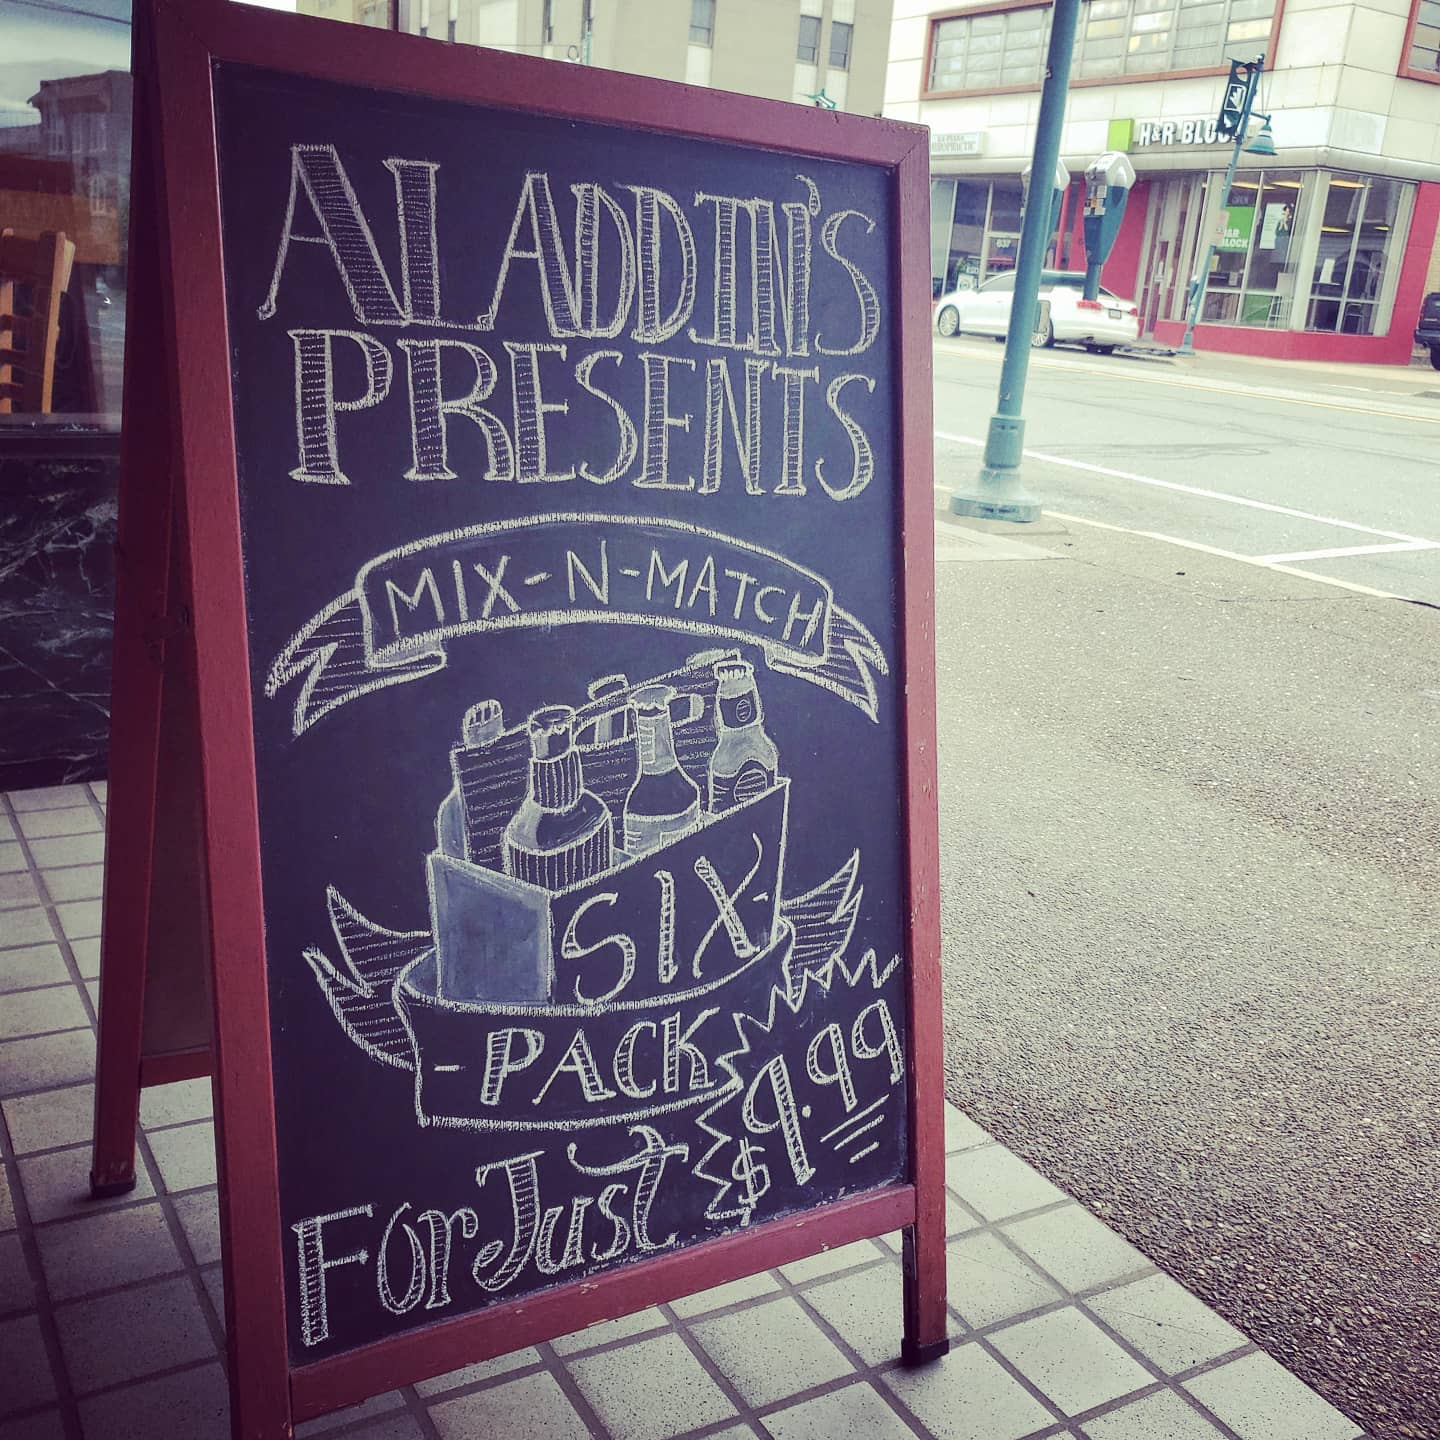 ALADDIN'S
PRESENTS
MIX-N-MATCH
SIX-
-PACK
FOR JUST
$9.99
H&R BLOCK
CHIROPRACTIC
637
OPEN
H&R
BLOCK